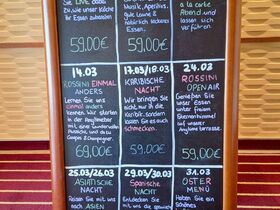 Sie LIVE dabei
zu wie unser Köche
Ihr Essen zubereiten
59,00€
Musik, Aperitivo,
gute Laune &
leckeres
Essen.
59,00€
a la carte
Abend und
lassen sich
verführen.
14.03
ROSSINI EINMAL
ANDERS
Lernen Sie uns
einmal anders
kennen. Wir starten
in der
mit einer
Musik und das
Gaspes & Champagner
69,00€
17.03/18.03
KARIBISCHE
NACHT
Wir bringen Sie
nicht nur in die
Karibik, sondern
lassen Sie es auch
schmecken.
59,00€
24.03
ROSSINI
OPEN AIR
Genießen Sie
unser Essen
unter freiem
Sternenhimmel
auf unserer
terrasse.
59,00€
25.03/26.03
ASIATISCHE
NACHT
Reisen Sie mit uns
nach ASIEN
29.03/30.03
Spanische
NACHT
Entdecken Sie
mit uns die
31.03
OSTER
MENÜ
Feiern Sie mit
uns